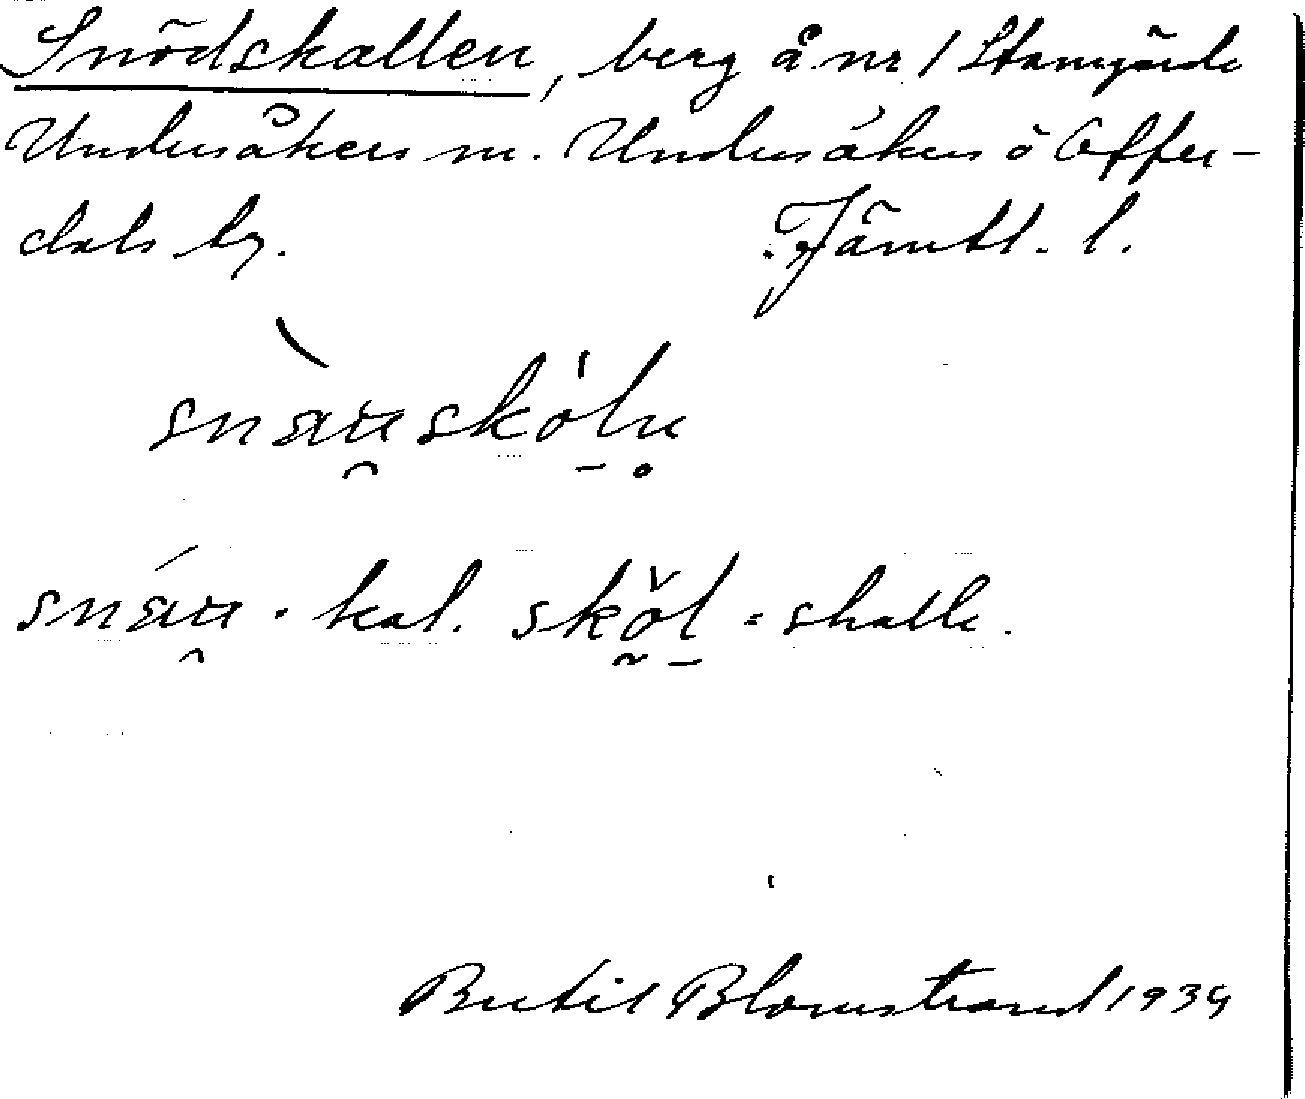 Snödskallen, berg å nr 1 Stamgärde
Undersåkers sn. Undersåkers o Offer-
dals tg. Jämtl. l.
snàu̯sköln̥
snáu̯ · kal. sköl = skalle.
Bertil Blomstrand 1939